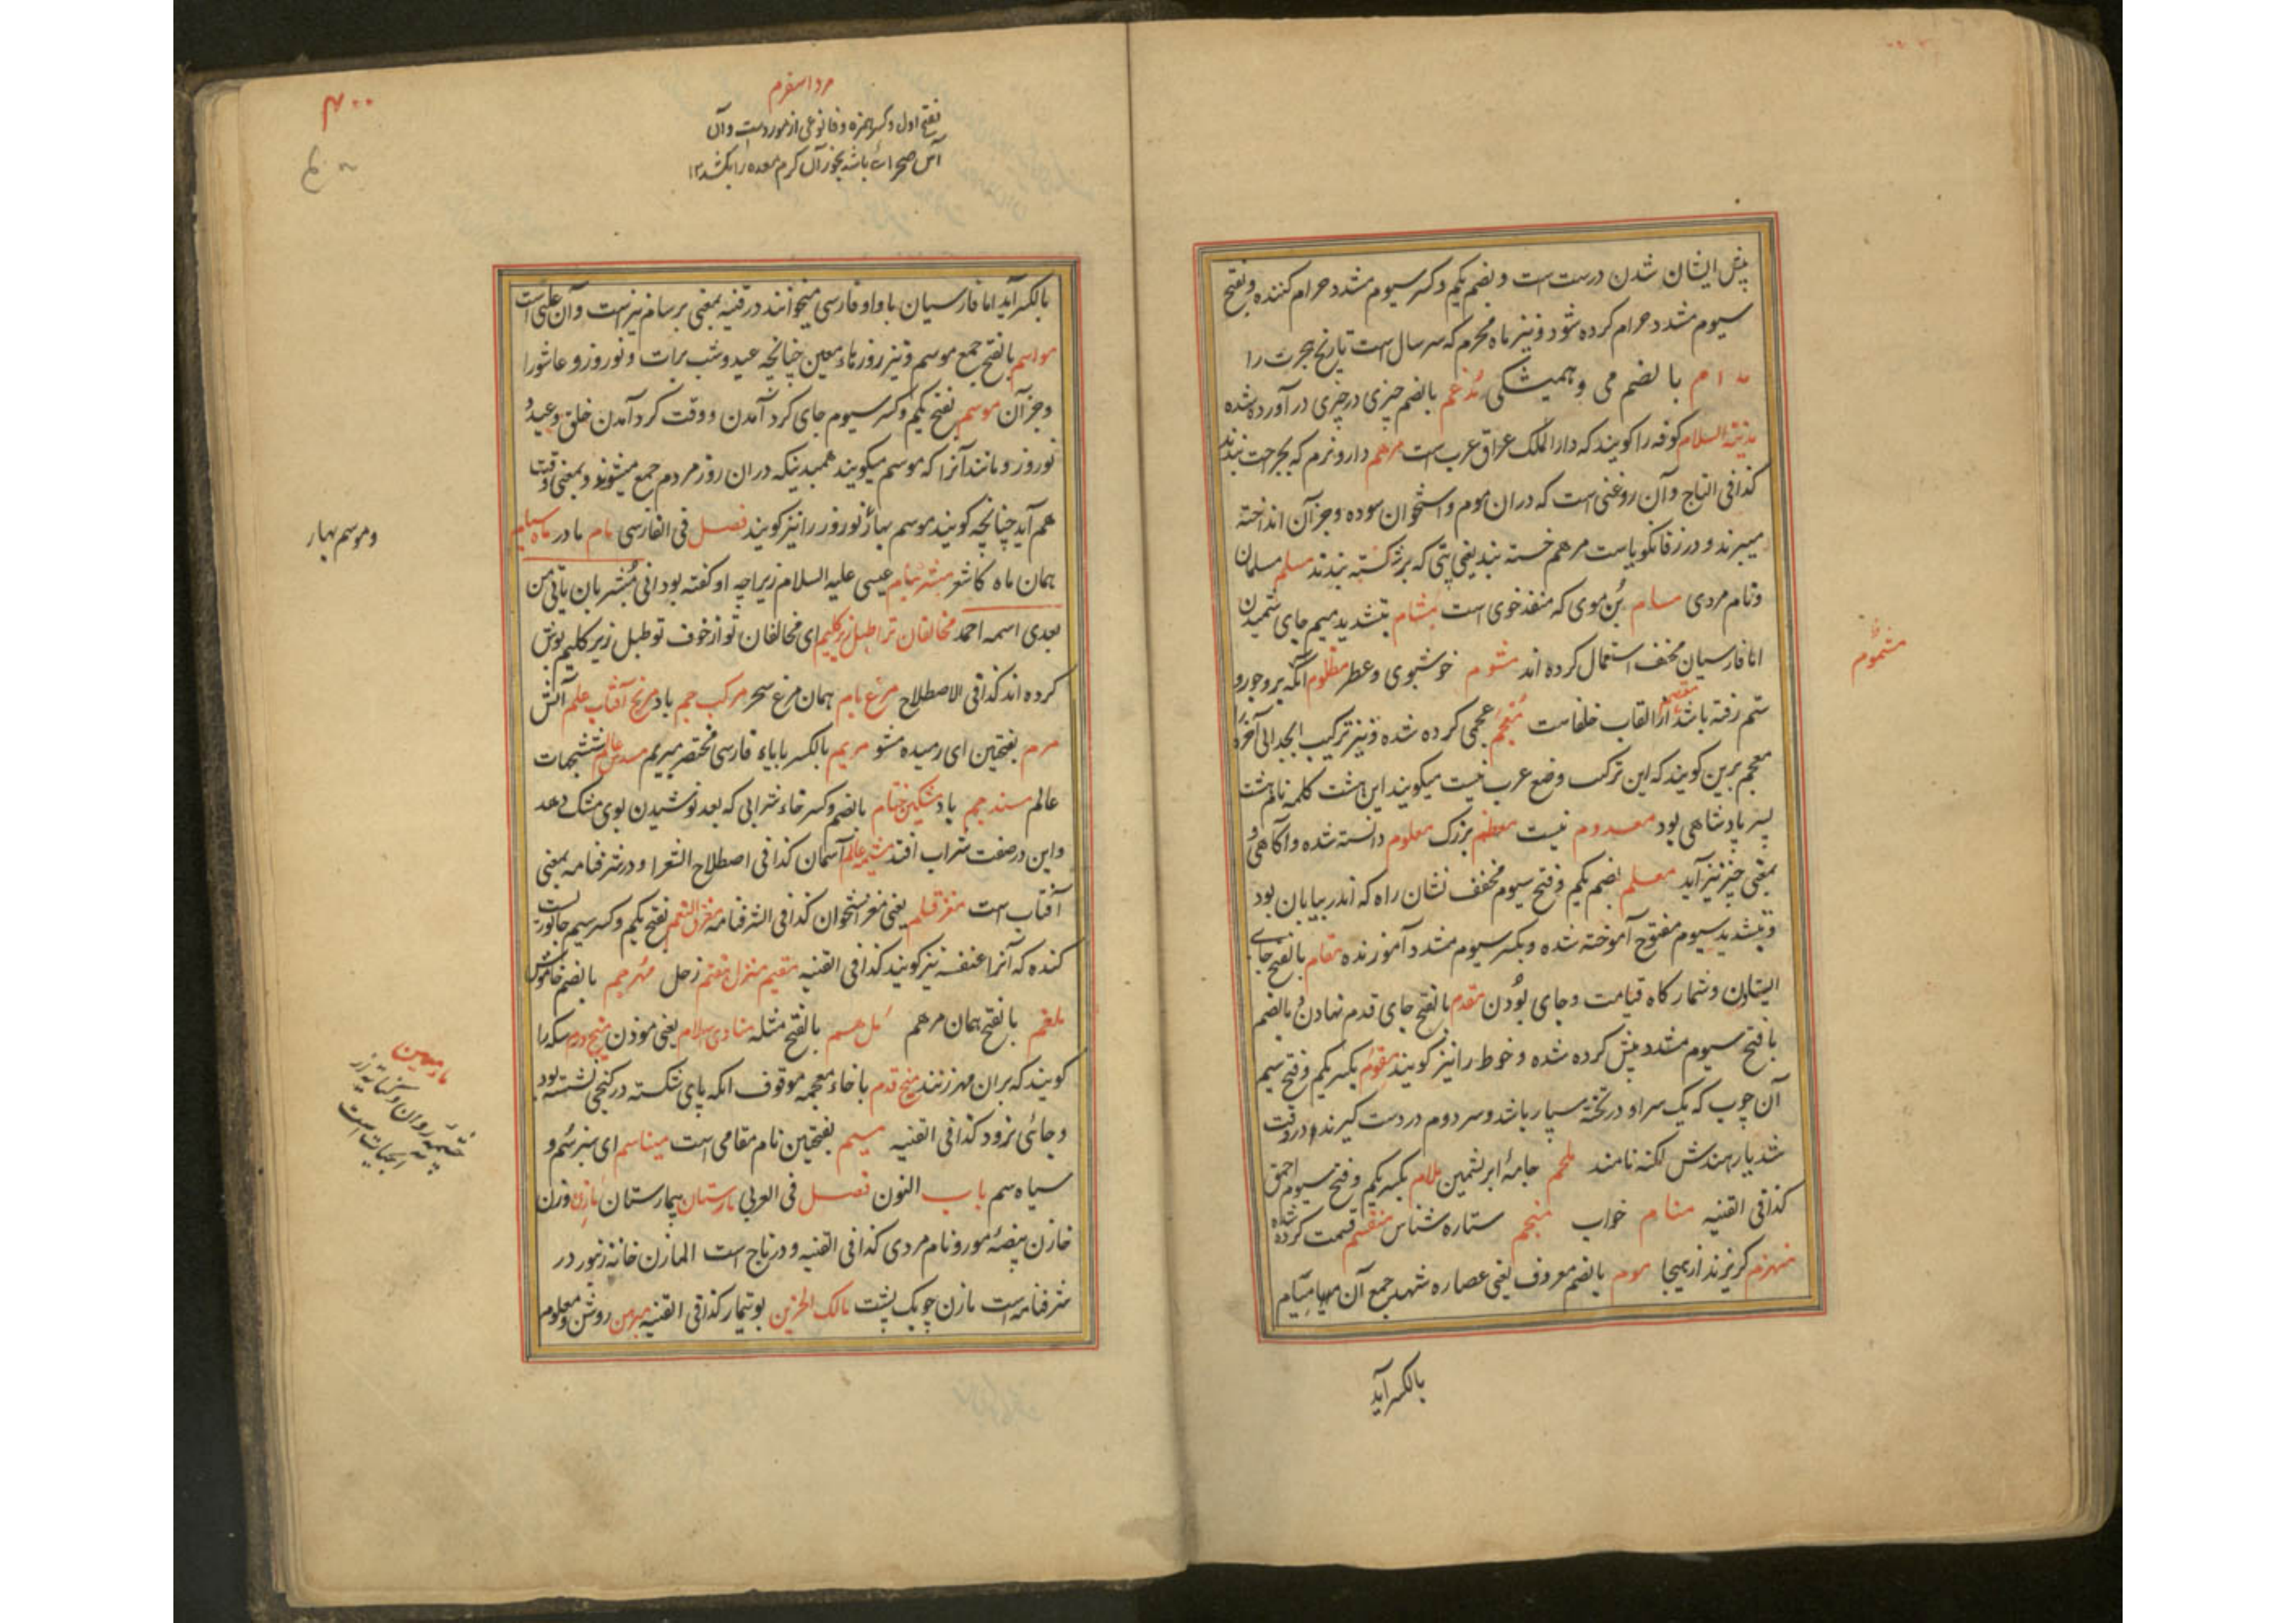 پیش ایشان شدن درست است و بضم یکم و کسر سیوم مشدد حرام کننده و بفتح
سیوم مشدد حرام کرده شود و نیز ماه محرم که سر سال است تاریخ هجرت را
مدام بالضم می و همیشگی مدغم بالضم چیزی در چیزی در آورده شده
مدینة السلام کوفه را گویند که دار الملک عراق عرب است مرهم دارو نرم که بجراحت نهند
کذا فی التاج و آن روغنی است که دران موم و استخوان سوده و جز آن انداخته
میبرند و در زفانگویاست مرهم خسته بند یعنی پتی که بر شکسته بندند مسلم مسلمان
و نام مردی مسام بن موی که منفذ خوی است مشام بتشدید میم جای شمیدن
اما فارسیان مخفف استعمال کرده اند مشموم خوشبوی و عطر مظلوم آنکه برو جور و
مشموم
ستم رفته باشد معتصم از القاب خلفاست معجم عجمی کرده شده و نیز ترکیب ابجد الی آخره را
معجم برین گویند که این ترکیب وضع عرب نیست میگویند این هشت کلمه نام هشت
پسر پادشاهی بود معدوم نیست معظم بزرگ معلوم دانسته شده و آگاهی و
بمعنی چیز نیز آید معلم بضم یکم و فتح سیوم مخفف نشان راه که اندر بیابان بود
و بتشدید سیوم مفتوح آموخته شده و بکسر سیوم مشدد آموزنده مقام بالفتح جای
ایستادن و شمارگاه قیامت و جای بودن مقدم بالفتح جای قدم نهادن و بالضم
با فتح سیوم مشدد پیش کرده شده و خوط را نیز گویند مقوم بکسر یکم و فتح سیم
آن چوب که یک سر او در تخته سپار باشد و سر دوم در دست گیرند در وقت
شدیار هندش لکنه نامند ملحم جامهٔ ابریشمین ملام بکسر یکم و فتح سیوم احمق
کذا فی القنیه منام خواب منجم ستاره شناس منقسم قسمت کرده شده
منهزم گریزند از هیجا موم بالضم معروف یعنی عصاره شهد جمع آن میام
بالکسر آید
۴۰۰
مرد اسفرم
بفتح اول و کسر همزه و فا نوعی از مورد است و آن
آس صحرائی باشد بخور آن کرم معده را بکشد ۱۲
بالکسر آید اما فارسیان با واو فارسی میخوانند در قنیه بمعنی برسام نیز است و آن علتی است
مواسم بالفتح جمع موسم و نیز روزهاء معین چنانچه عید و شب برات و نوروز و عاشورا
و جز آن موسم بفتح یکم و کسر سیوم جای گرد آمدن و وقت گرد آمدن خلق و عید و
نوروز و مانند آنرا که موسم میگویند همبدینکه دران روز مردم جمع میشوند و بمعنی وقت
هم آید چنانچه گویند موسم بهار نوروز را نیز گویند فصل فی الفارسی مام مادر ماه سیام
و موسم بهار
همان ماه کاشغر مبشر بنام عیسی علیه السلام زیراچه او گفته بود انی مبشر بان یاتی من
بعدی اسمه احمد مخالفان ترا طبل زیر گلیم ای مخالفان تو از خوف تو طبل زیر گلیم پوش
کرده اند کذا فی الاصطلاح مرغ بام همان مرغ سحر مرکب جم باد مریخ آفتاب علم آتش
مرم بفتحتین ای رمیده مشو مریم بالکسر با یاء فارسی مختصر بمیریم مسدس عالم ششجهات
عالم مسند جم باد مشکین ختام بالضم و کسر خاء شرابی که بعد نوشیدن بوی مشک دهد
و این در صفت شراب افتد مشیمه عالم آسمان کذا فی اصطلاح الشعرا و در شرفنامه بمعنی
آفتاب است مغز قلم یعنی مغز استخوان کذا فی الشرفنامه بفتح یکم و کسر سیم جانوریست
کنده که آنرا عنفسه نیز گویند کذا فی القنیه مقیم منزل هفتم زحل مهر جم بالضم خاموش
ملغم بالفتح همان مرهم ملهم بالفتح مثله منادی اسلام یعنی موذن میخ درم سکه را
گویند که بران مهر زنند میخ قدم با خاء معجمه موقوف آنکه پای شکسته در کنجی نشسته بود
و جائی نرود کذا فی القنیه میم بفتحتین نام مقامی است میناسم ای سبز سم و
مار معین
چشمه روان و
آبحیات است
سیاه سم باب النون فصل فی العربی مارستان بیمارستان مازن وزن
خازن بیضهٔ مور و نام مردی کذا فی القنیه و در تاج است المازن خانه زنبور در
شرفنامه است مازن چوبک پشت مالک الحزین بوتیمار کذا فی القنیه مبرهن روشن و معلوم